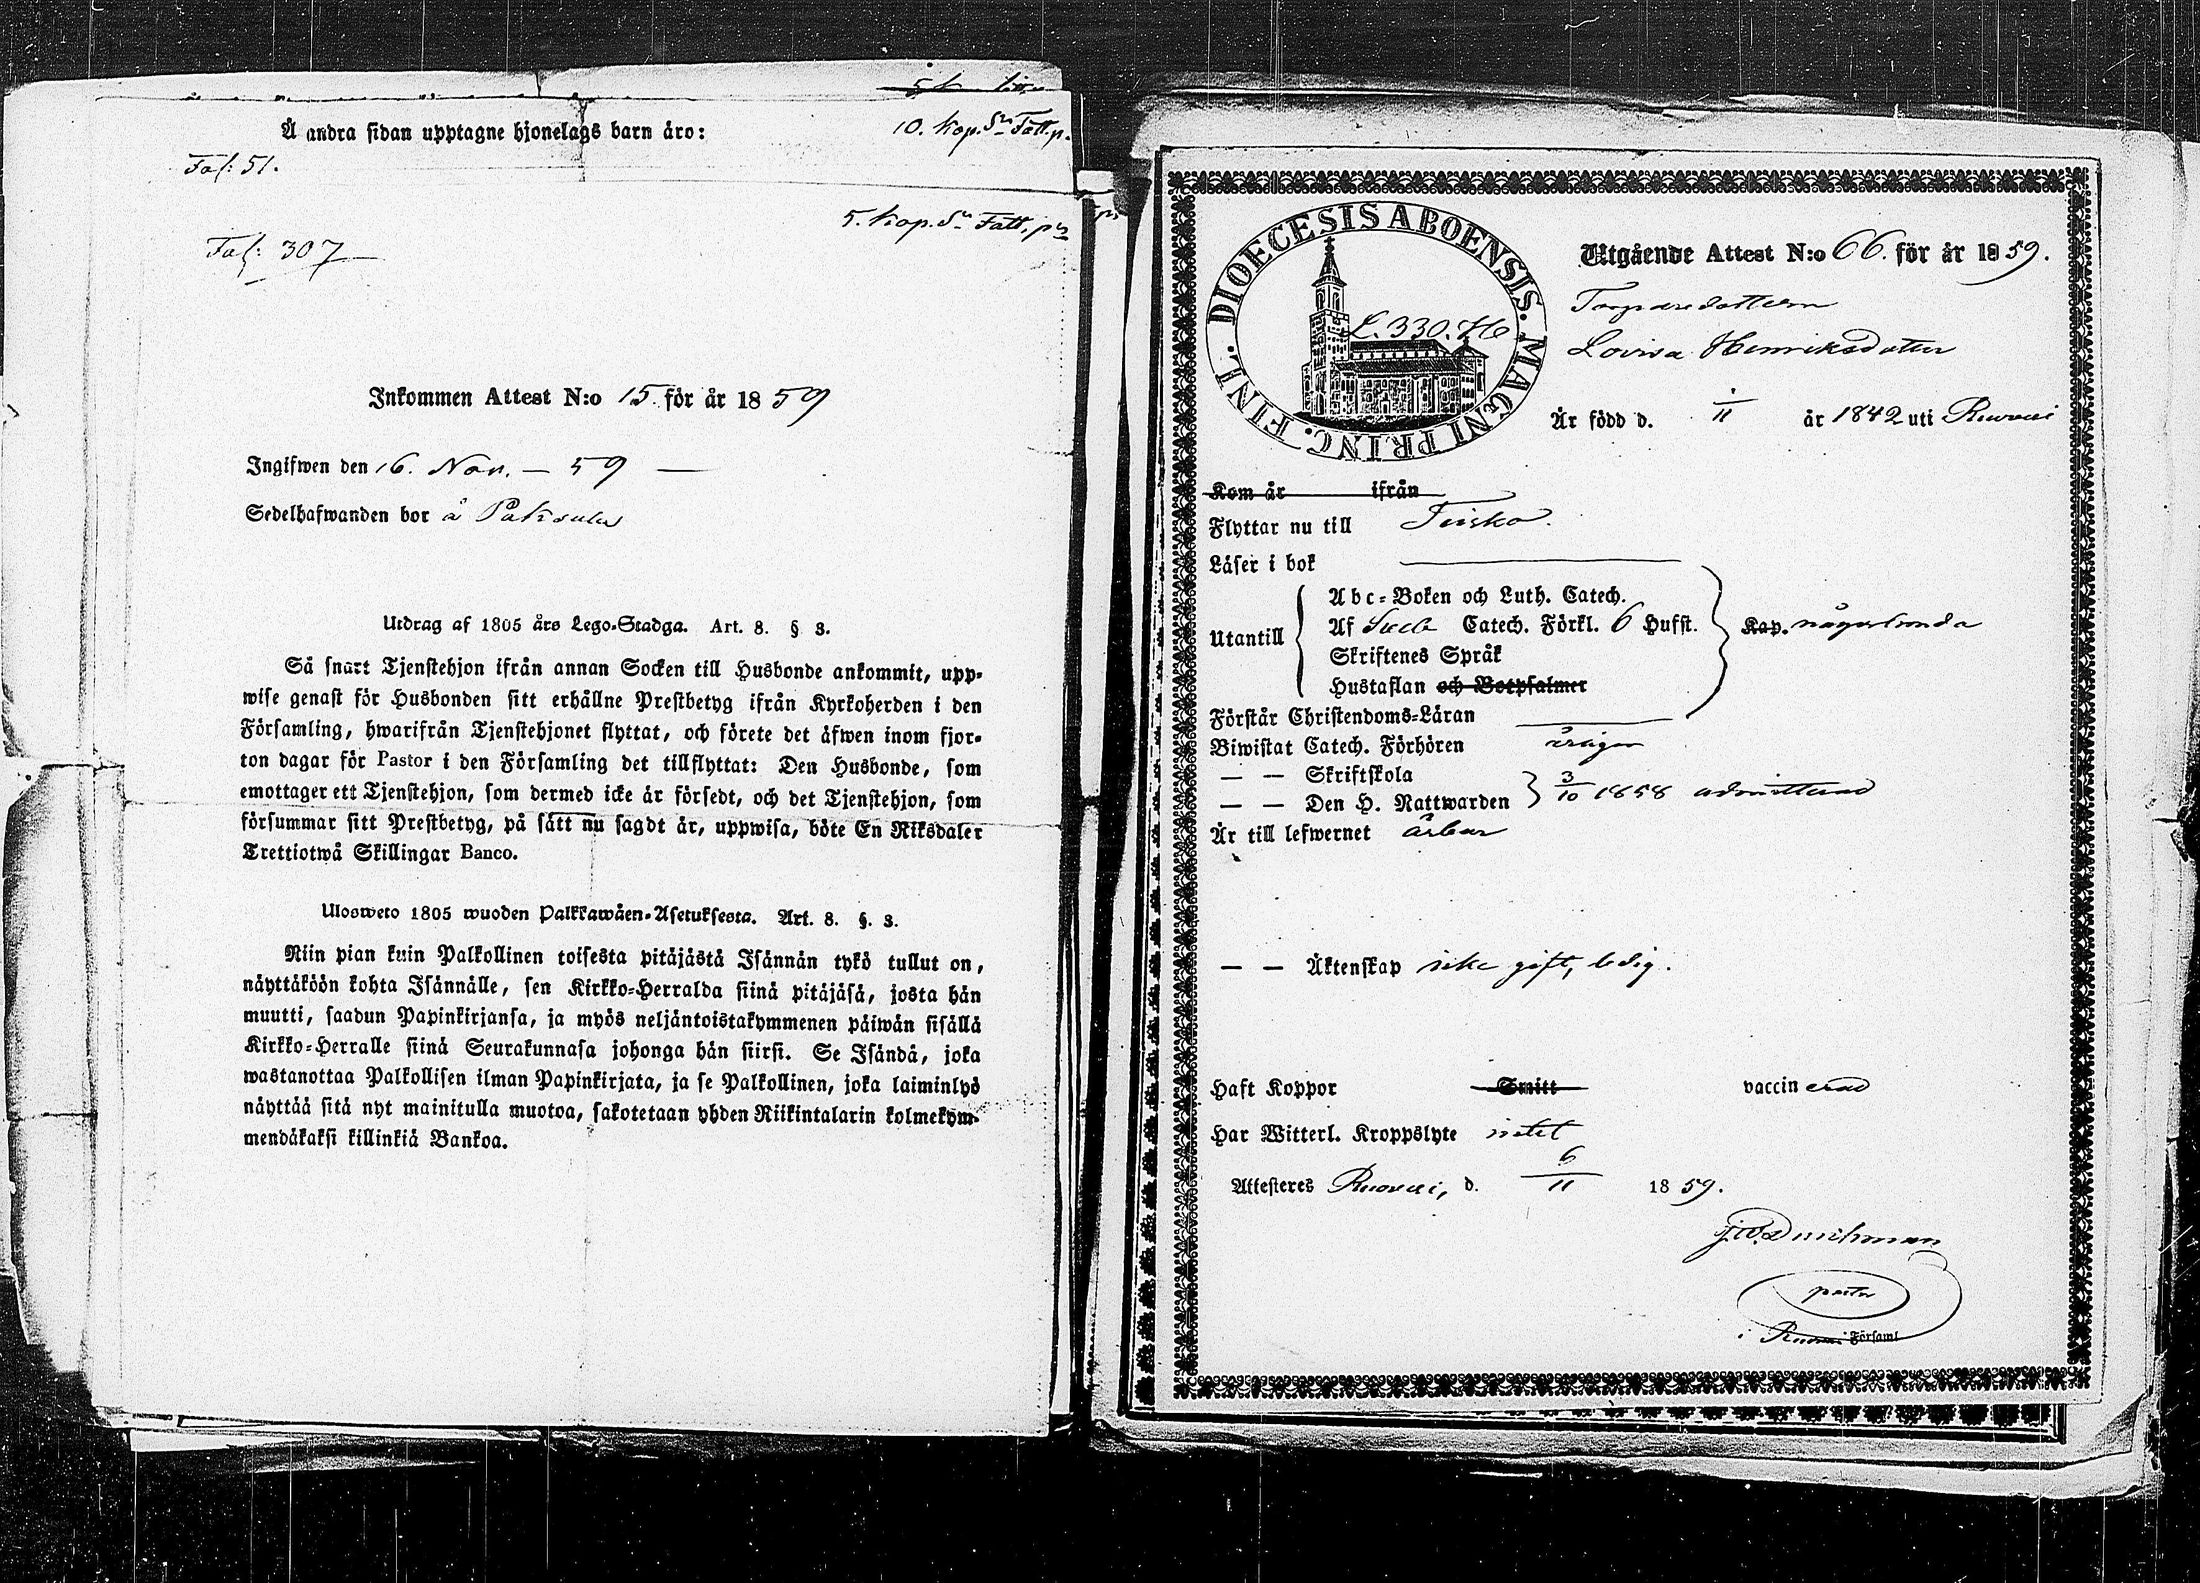 Å andra sidan upptagne hjonelags barn äro:
10. Kop. Sr Fatt.p.
Fol: 51.
5. Kop. Sr Fatt. p
Fol: 307
Inkommen Attest N:o 15 för år 1859
Ingifwen den 16. Nov. – 59
Sedelhafwanden bor å Paksula
Utdrag af 1805 års Lego-Stadga. Art. 8. § 3.
Så snart Tjenstehjon ifrån annan Socken till Husbonde ankommit, upp-
wise genast för Husbonden sitt erhållne Prestbetyg ifrån Kyrkoherden i den
Församling, hwarifrån Tjenstehjonet flyttat, och förete det äfwen inom fjor-
ton dagar för Pastor i den Församling det tillflyttat: Den Husbonde, som
emottager ett Tjenstehjon, som dermed icke är försedt, och det Tjenstehjon, som
försummar sitt Prestbetyg, på sätt nu sagdt är, uppwisa, böte En Riksdaler
Trettiotwå Skillingar Banco.
Ulosweto 1805 wuoden Palkkawäen-Asetuksesta. Art. 8. §. 3.
Niin pian kuin Palkollinen toisesta pitäjästä Isännän tykö tullut on,
näyttäköön kohta Isännälle, sen Kirkko-Herralda siinä pitäjäsä, josta hän
muutti, saadun Papinkirjansa, ja myös neljäntoistakymmenen päiwän sisällä
Kirkko-Herralle siinä Seurakunnasa johonga hän siirsi. Se Isändä, joka
wastanottaa Palkollisen ilman Papinkirjata, ja se Palkollinen, joka laiminlyö
näyttää sitä nyt mainitulla muotoa, sakotetaan yhden Riikintalarin kolmekym-
mendäkaksi killinkiä Bankoa.
DIOECESIS ABOENSIS. MAGNI PRINC. FINL.
L. 330. H6
Utgående Attest N:o 66. för år 1859.
Torparedottern
Lovisa Henriksdotter
Är född d. 1/11 år 1842 uti Ruovesi
Kom år ifrån
Flyttar nu till Teisko.
Läser i bok
Abc-Boken och Luth. Catech.
Utantill Af Sveb Catech. Förkl. 6 Hufst. Kap. någorlunda
Skriftenes Språk
Hustaflan och Botpsalmer
Förstår Christendoms-Läran
Biwistat Catech. Förhören årligen
— — Skriftskola
— — Den H. Nattwarden 3/10 1858 admitterad
Är till lefwernet ärbar
— — Äktenskap icke gift, ledig.
Haft Koppor Smitt vaccinerad
Har Witterl. Kroppslyte intet
Attesteres Ruovesi, d. 6/11 1859.
pastor
i Ruovesi Församl